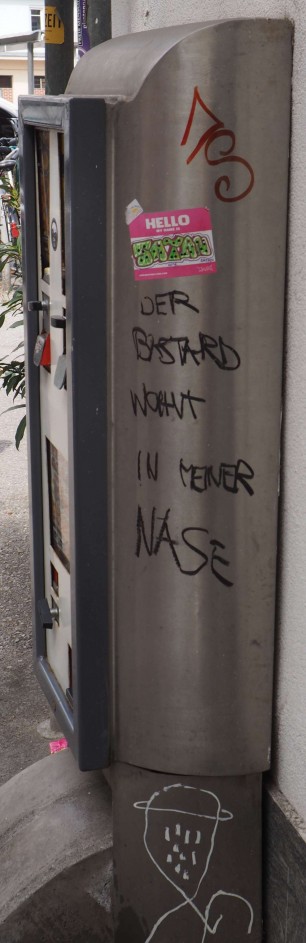 ZEIT
HELLO
MY NAME IS
DER
BASTARD
WOHNT
IN MEINER
NASE